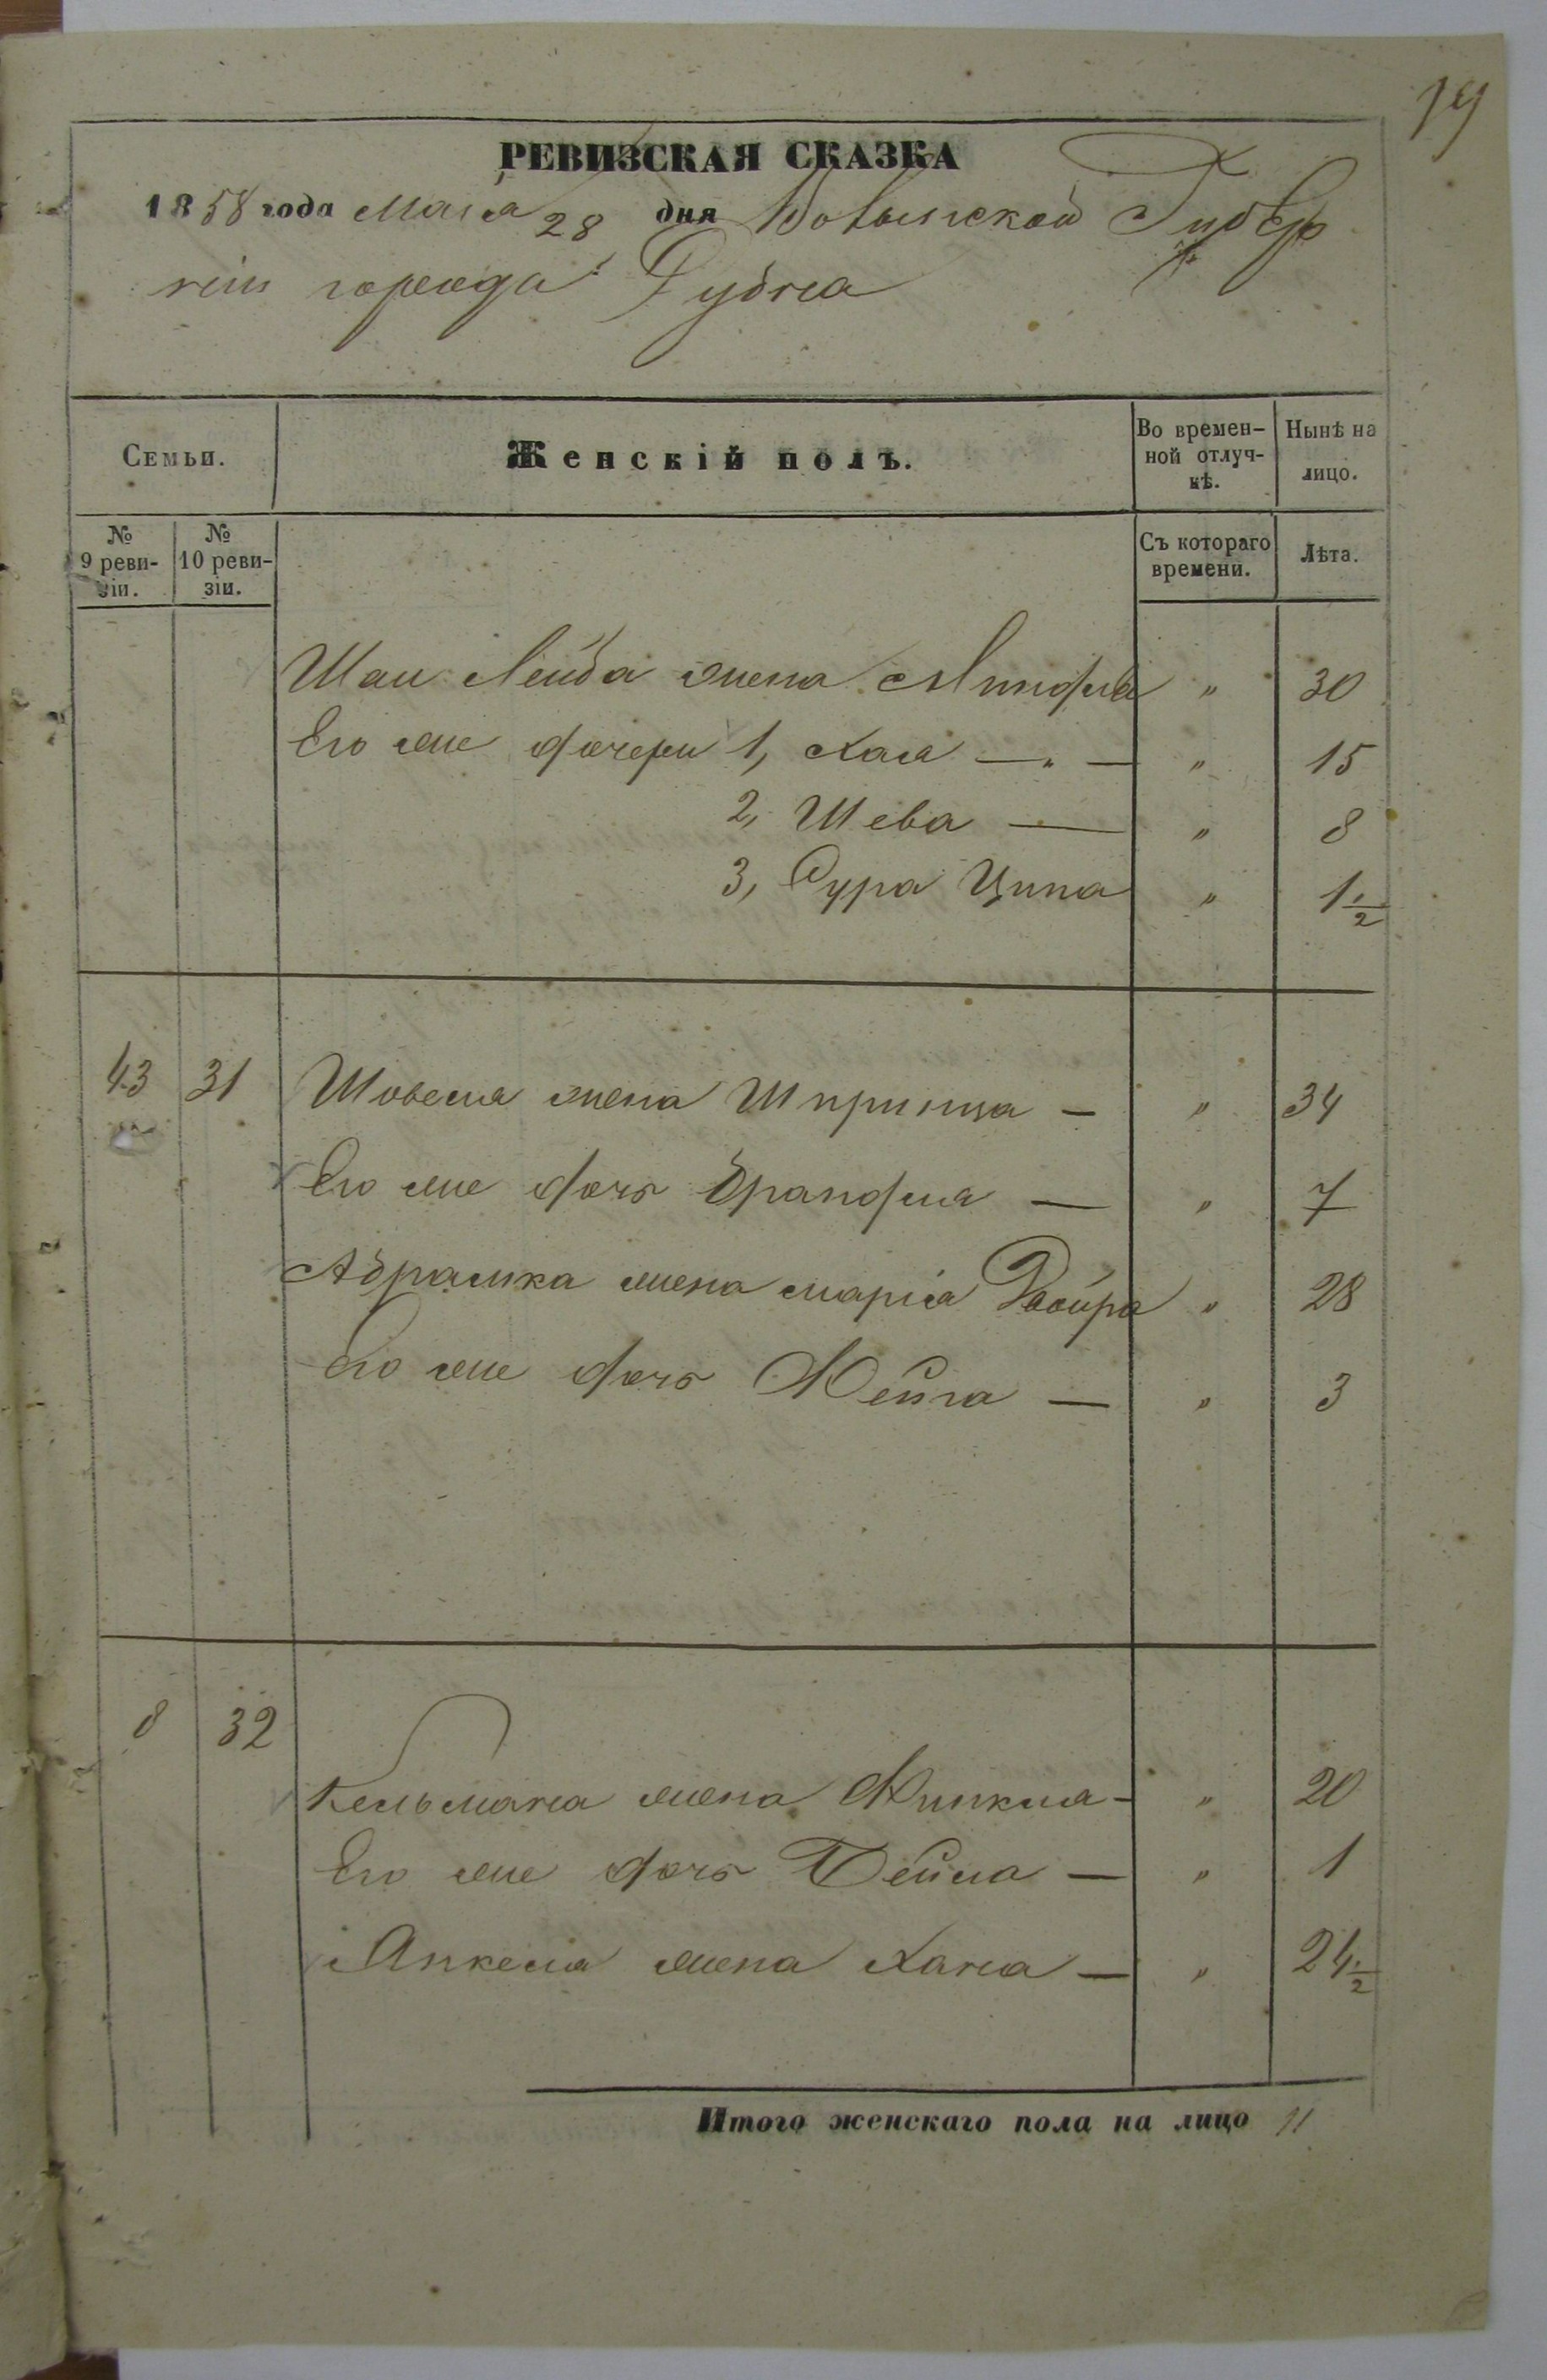 19
РЕВИЗСКАЯ СКАЗКА
1858 года Мая 28 дня Волынской Губер
ніи города Дубна
Семьи.
Женскій полъ.
Во времен-
ной отлуч-
кѣ.
Нынѣ на
лицо.
№
9 реви-
зіи.
№
10 реви-
зіи.
Съ котораго
времени.
Лѣта.
Шаи Лейба жена " 30
Его же дочери 1, Хая — " — " 15
2, Шева — " 8
3, Сура Ципа " 1 1/2
43 31 Шовеля жена Шпринца — " 34
Его же дочь Брандля — " 7
Абрамка жена марія Двойра " 28
Его же дочь Нейга — " 3
8 32
Кельмана жена — " 20
Его же дочь Бейла — " 1
Янкеля жена Хана — " 24 1/2
Итого женскаго пола на лицо 11